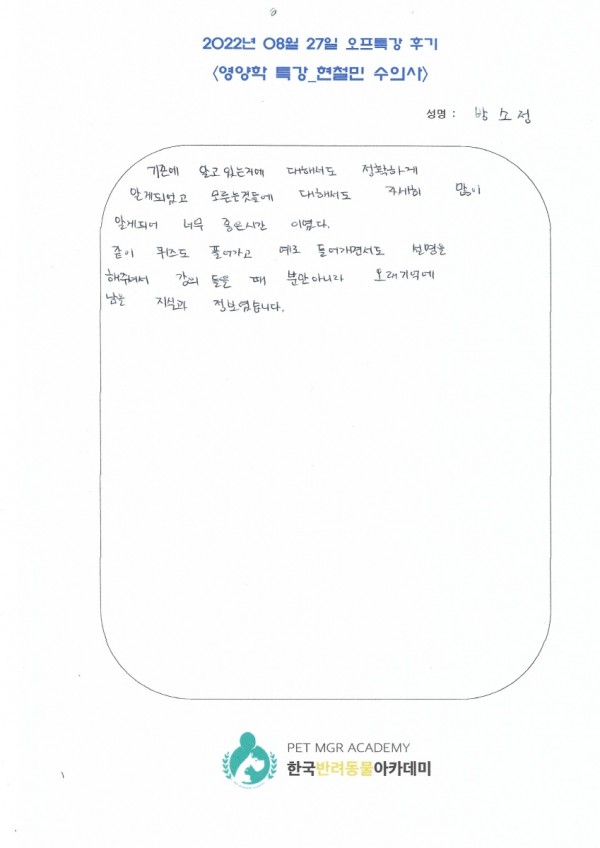 2022년 08월 27일 오프특강 후기
<영양학 특강_현철민 수의사>
성명 : 박소정
기존에 알고 있는지에 대해서도 정확하게
알게되었고 모르는것들에 대해서도 자세히 많이
알게되어 너무 좋은시간 이였다.
같이 퀴즈도 풀어가고 예로 들어가면서도 설명을
해주셔서 강의 들을 때 뿐만아니라 오래기억에
남는 지식과 정보였습니다.
PET MGR ACADEMY
한국반려동물아카데미